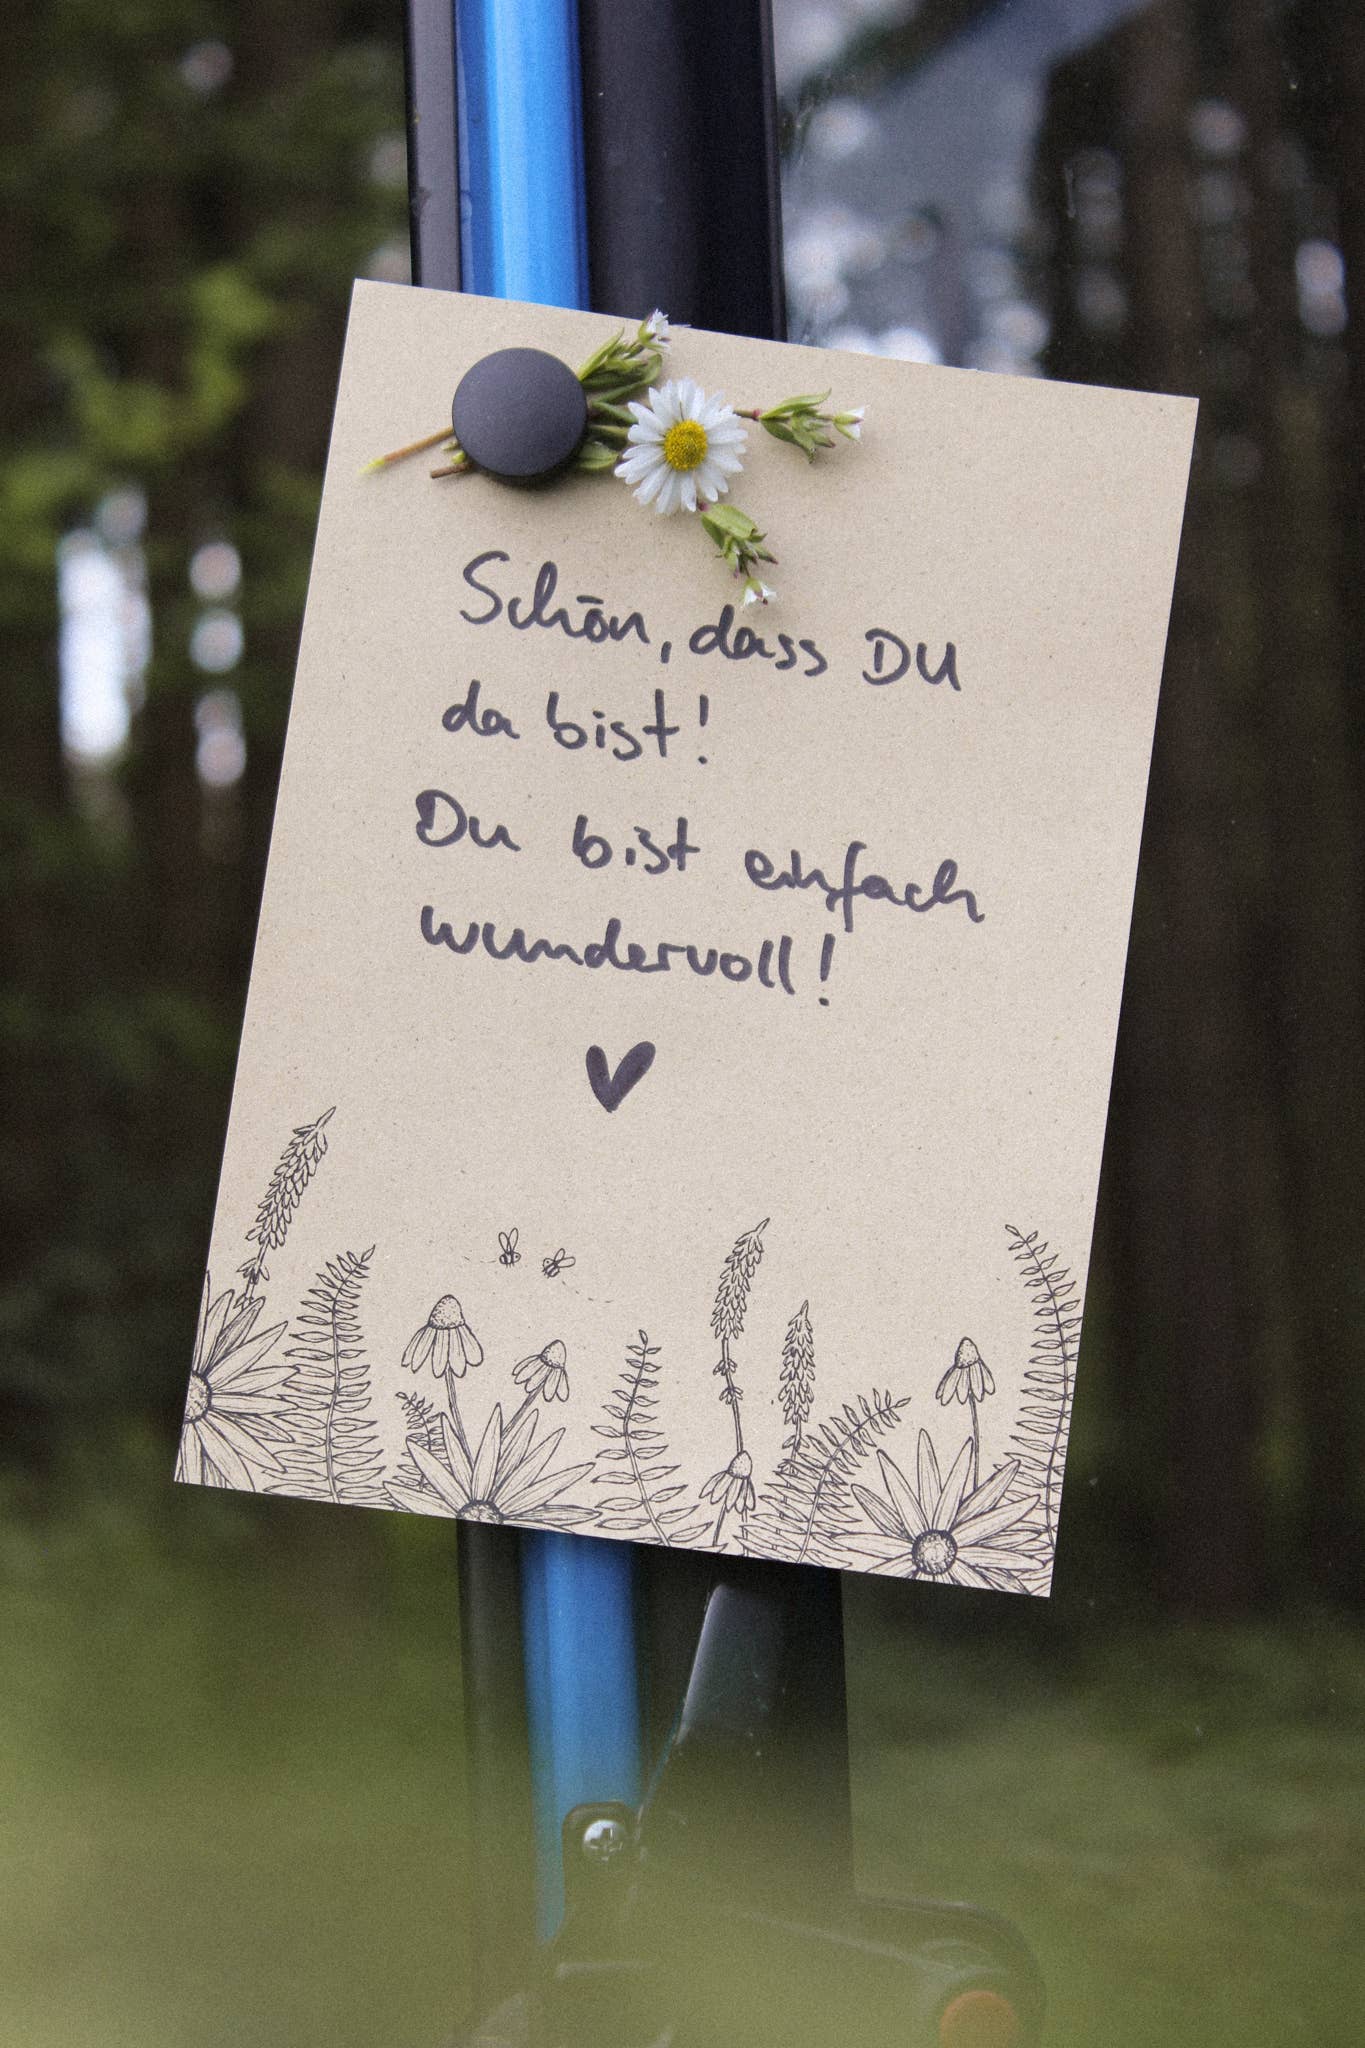 Schön, dass DU
da bist!
Du bist einfach
wundervoll!